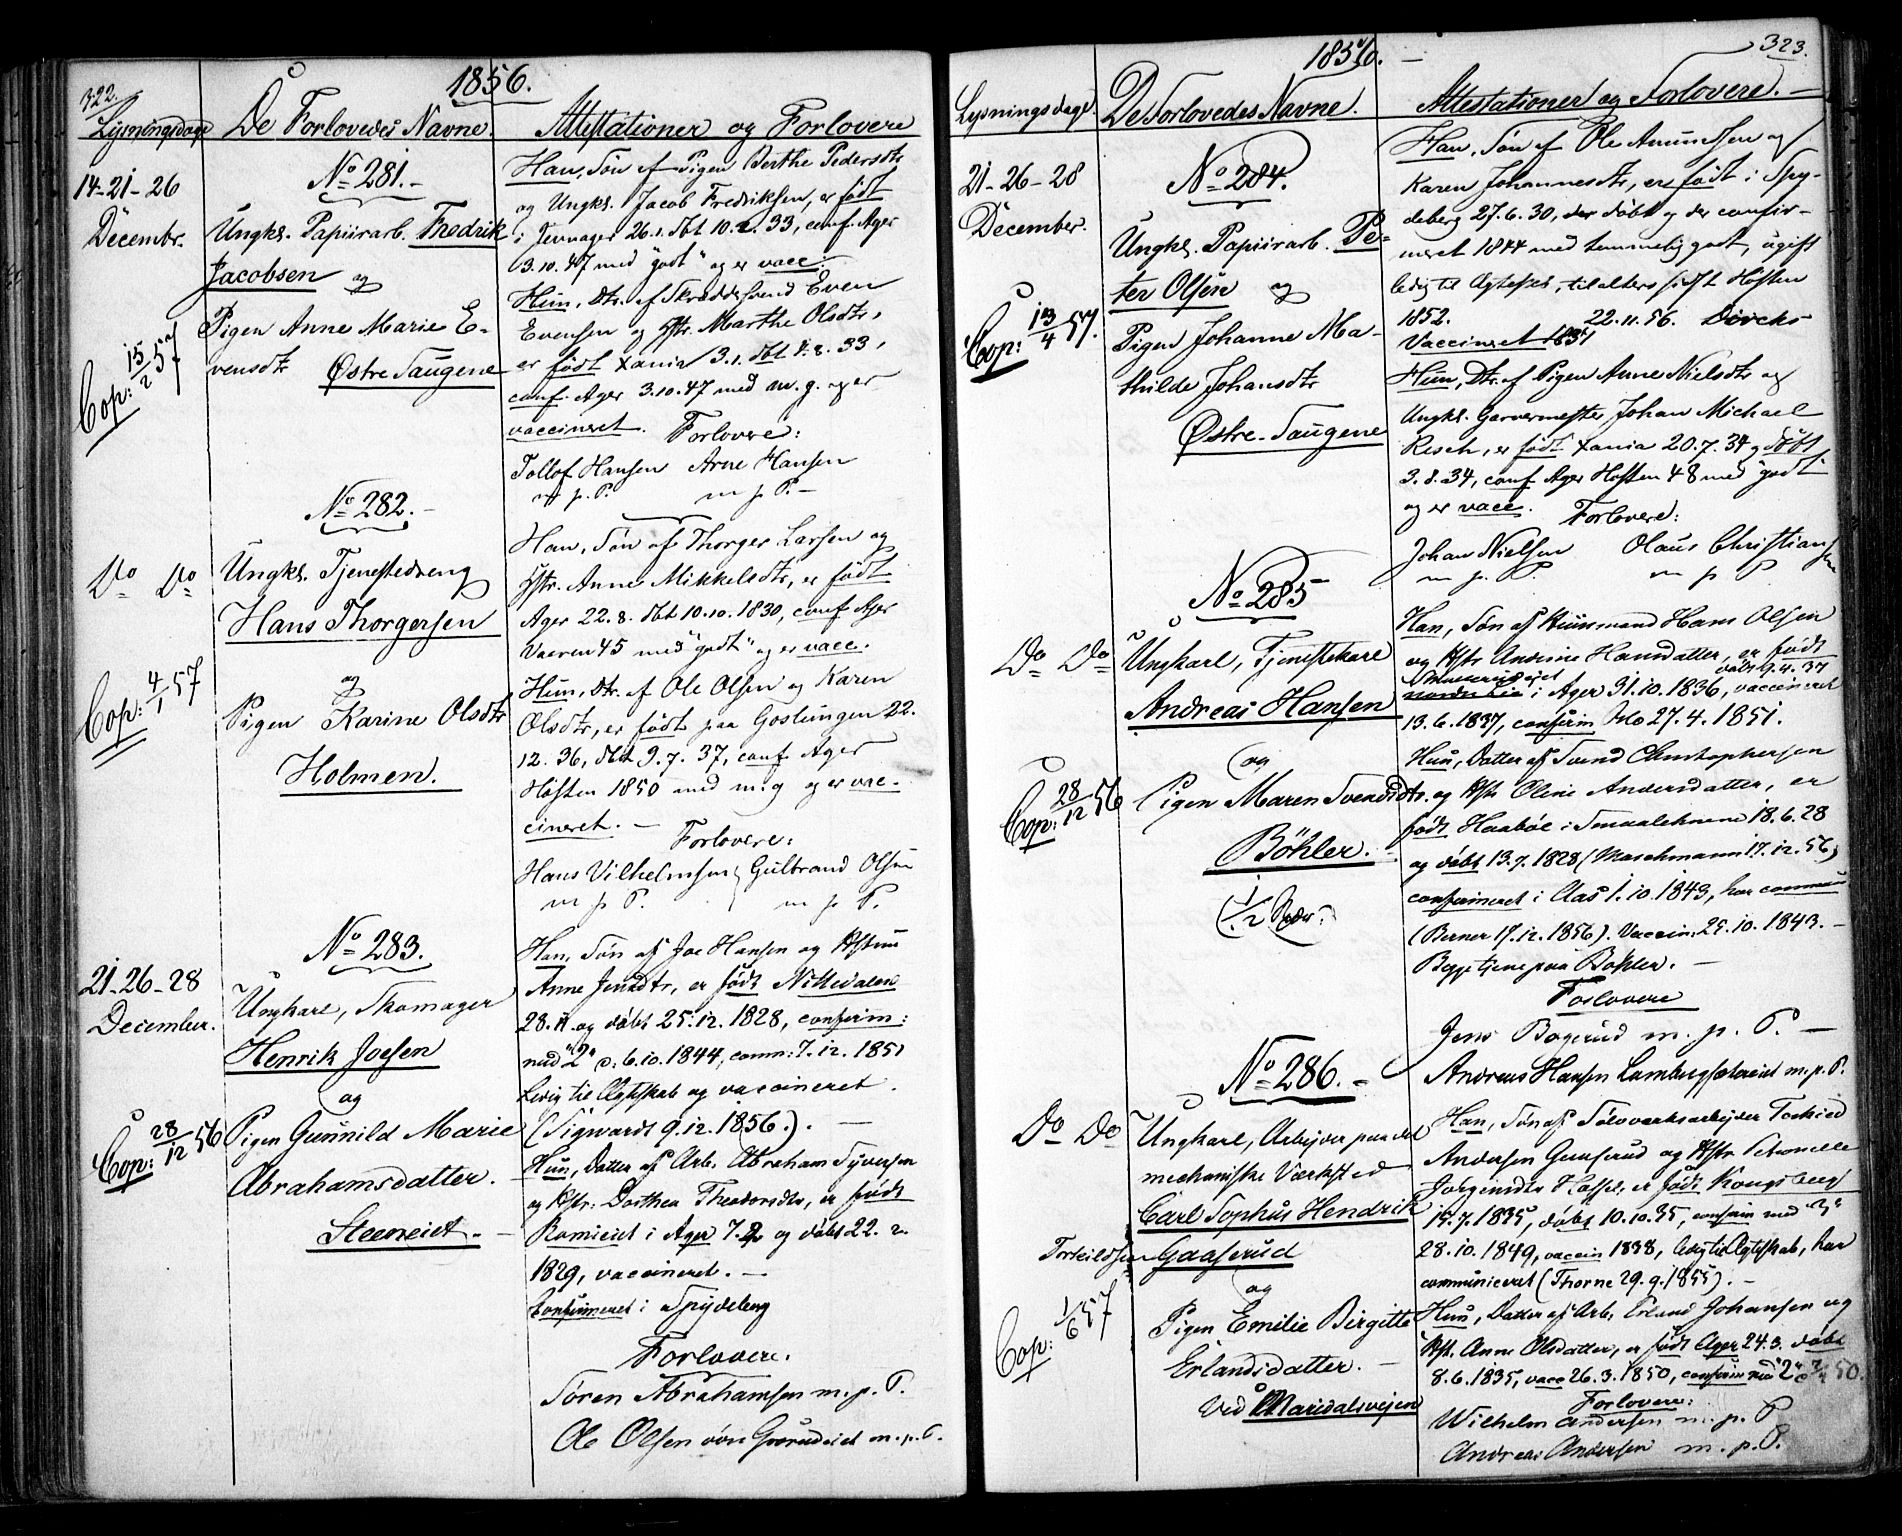 322.
1856.
Lysningsdage
De Forlovedes Navne.
Attestationer og Forlovere
14-21-26
Decembr.
Cop: 15/2 57
No 281.-
Ungk. Papiirarb. Fredrik
Jacobsen og
Pigen Anne Marie E-
vensdtr Østre Saugene
Han, Søn af Pigen Berthe Pedersdtr
og Ungk. Jacob Fredriksen, er født
i Jevnager 26.1. dbt 10.2. 33, conf. Ager
3.10.47 med "godt" og er vacc.
Hun, Dtr. af Skræddersvend Even
Evensen og Hstr. Marthe Olsdtr,
er født Xania 3.1. dbt 33,
conf. Ager 3.10.47 med m.g. og er
vaccineret. Forlovere:
Tollof Hansen Arne Hansen
m. p. P. m p P.-
Do Do
Cop: 4/1 57
No 282.-
Ungk. Tjenestedreng
Hans Thorgersen
og
Pigen Karine Olsdtr
Holmen.
Han, Søn af Thorger Larsen og
Hstr. Anne Mikkelsdtr, er født
Ager 22.8. dbt 10.10.1830, conf Ager
Vaaren 45 med "godt" og er vacc.
Hun, Dtr. af Ole Olsen og Karen
Olsdtr, er født paa Goslungen 22.
12.36, dbt 9.7.37, conf. Ager
Høsten 1850 med m.g og er vac-
cineret. -
Forlovere:
Hans Vilhelmsen Gulbrand Olsen
m p P. m p P.
21-26-28
December.
Cop: 28/12 56
No 283.
Ungkarl, Skomager
Henrik Joesen
og
Pigen Gunnild Marie
Abrahamsdatter.
Steeneiet.-
Han, Søn af Joe Hansen og Hstru
Anne Jensdtr, er født Nittedalen
28.11. og døbt 25.12.1828, confirm:
med "2" d. 6.10.1844, comm: 7.12.1851
Ledig til Ægteskab og vaccineret.
(Sigwardt 9.12.1856.).-
Hun, Datter af Arb. Abraham Syversen
og Hstr: Dorthea Theodorsdtr, er født
i Ager 7.2 og døbt 22.
1829, vaccineret.-
Confirmeret i Spydeberg
Forlovere.
Søren Abrahamsen m.p.P.
Ole Olsen m.p.P.
323.
1856.-
Lysningsdage.
De Forlovedes Navne.
Attestationer og Forlovere.-
21-26-28
December.
Cop: 13/4 57.
No 284.
Ungk. Papiirarb. Pe-
ter Olsen og
Pigen Johanne Ma-
thilde Johansdtr
Østre-Saugene
Han, Søn af Ole Amundsen og
Karen Johannesdtr, er født i Spy-
deberg 27.6.30, der døbt og der confir-
meret 1844 med temmelig godt, ugift
ledig til Ægtesk, til alters sidst Høsten
1852. 22.11.56. Dircks
Vaccineret 1837
Hun, Dtr. af Pigen Anne Nielsdtr og
Ungk. Garvermester Johan Michael
Resch, er født Xania 20.7.34 og døbt
3.8.34, conf Ager Høsten 48 med godt
og er vacc. Forlovere:
Johan Nielsen Olaus Christiansen
m. p. P. m p P.
Do Do
Cop: 28/12 56
No 285
Ungkarl, Tjenestekarl
Andreas Hansen
og
Pigen Maren Svendsdtr.
Böhler.
Han, Søn af Huusmand Hans Olsen
og Hstr Andrine Hansdatter, er født
døbt 9.4.37
i Ager 31.10.1836, vaccineret
13.6.1837, confirm 27.4.1851.
Hun, Datter af Svend Christophersen
og Hstr Oline Andersdatter, er
født Haabøl i Smaalehnene 18.6.28
og døbt 13.7.1828 (Maschmann 17.12.56)
confirmeret i Aas 1.10.1843, har commun
(Berner 17.12.1856). Vaccin: 25.10.1843.-
Begge tjene paa Bøhler.-
Forlovere
Jens Bogerud m. p. P.-
Andreas Hansen m.p.P.
Do Do
Cop: 1/6 57
No 286.-
Ungkarl, Arbejder paa det
mechaniske Værksted
Carl Sophus Hendrik
Torkildsen Gaaserud
og
Pigen Emilie Birgitte
Erlandsdatter.-
Ved Maridalsvejen
Han, Søn af Sølvverksarbejder Torkied
Andersen Gaaserud og Hstr Petronelle
Jörgensdtr er født Kongsberg
19.7.1835, døbt 10.10.35, confirm med "3"
28.10.1849, vaccin 1838, ledig til Ægteskab, har
communiceret (Thorne 29.9.1855).-
Hun, Datter af Arb. Erland Johansen og
Hst. Anne Olsdatter, er født Ager 24.3. døbt
8.6.1835, vacc 26.3.1850, confirm med "2" 50.
Forlovere:
Wilhelm Andersen m. p. P
Andreas Andersen m. p. P.